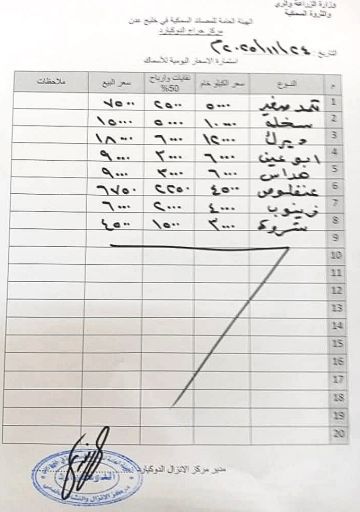 وزارة الزراعة والري
والثروة السمكية
الهيئة العامة للمصائد السمكية في خليج عدن
مركز حراج الدوكيارد
التاريخ ٢٠٢٥/١١/٢٤م
استمارة الاسعار اليومية للأسماك
م النوع سعر الكيلو خام نفايات وارباح 50% سعر البيع ملاحظات
1 ثمد صغير ٥٠٠٠ ٢٥٠٠ ٧٥٠٠
2 سخلة ١٠٠٠٠ ٥٠٠٠ ١٥٠٠٠
3 ديرك ١٢٠٠٠ ٦٠٠٠ ١٨٠٠٠
4 ابو عين ٦٠٠٠ ٣٠٠٠ ٩٠٠٠
5 هداس ٦٠٠٠ ٣٠٠٠ ٩٠٠٠
6 عنفلوص ٤٥٠٠ ٢٢٥٠ ٦٧٥٠
7 زينوب ٤٠٠٠ ٢٠٠٠ ٦٠٠٠
8 شروة ٣٠٠٠ ١٥٠٠ ٤٥٠٠
9
10
11
12
13
14
15
16
17
18
19
20
مدير مركز الانزال الدوكيارد